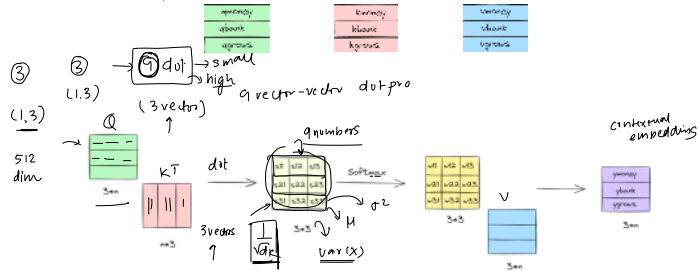 qmoney
qbank
qgrows
kmoney
kbank
kgrows
vmoney
vbank
vgrows
3
3
9 dot
small
high
(1,3)
(3 vector)
9 vector-vector dot pro
(1,3)
Q
512
dim
3*n
KT
n*3
dot
9 numbers
s11 s12 s13
s21 s22 s23
s31 s32 s33
3*3
3 vectors
1
√dk
μ
σ2
var(x)
softmax
w11 w12 w13
w21 w22 w23
w31 w32 w33
3*3
V
3*n
contextual
embedding
ymoney
ybank
ygrows
3*n